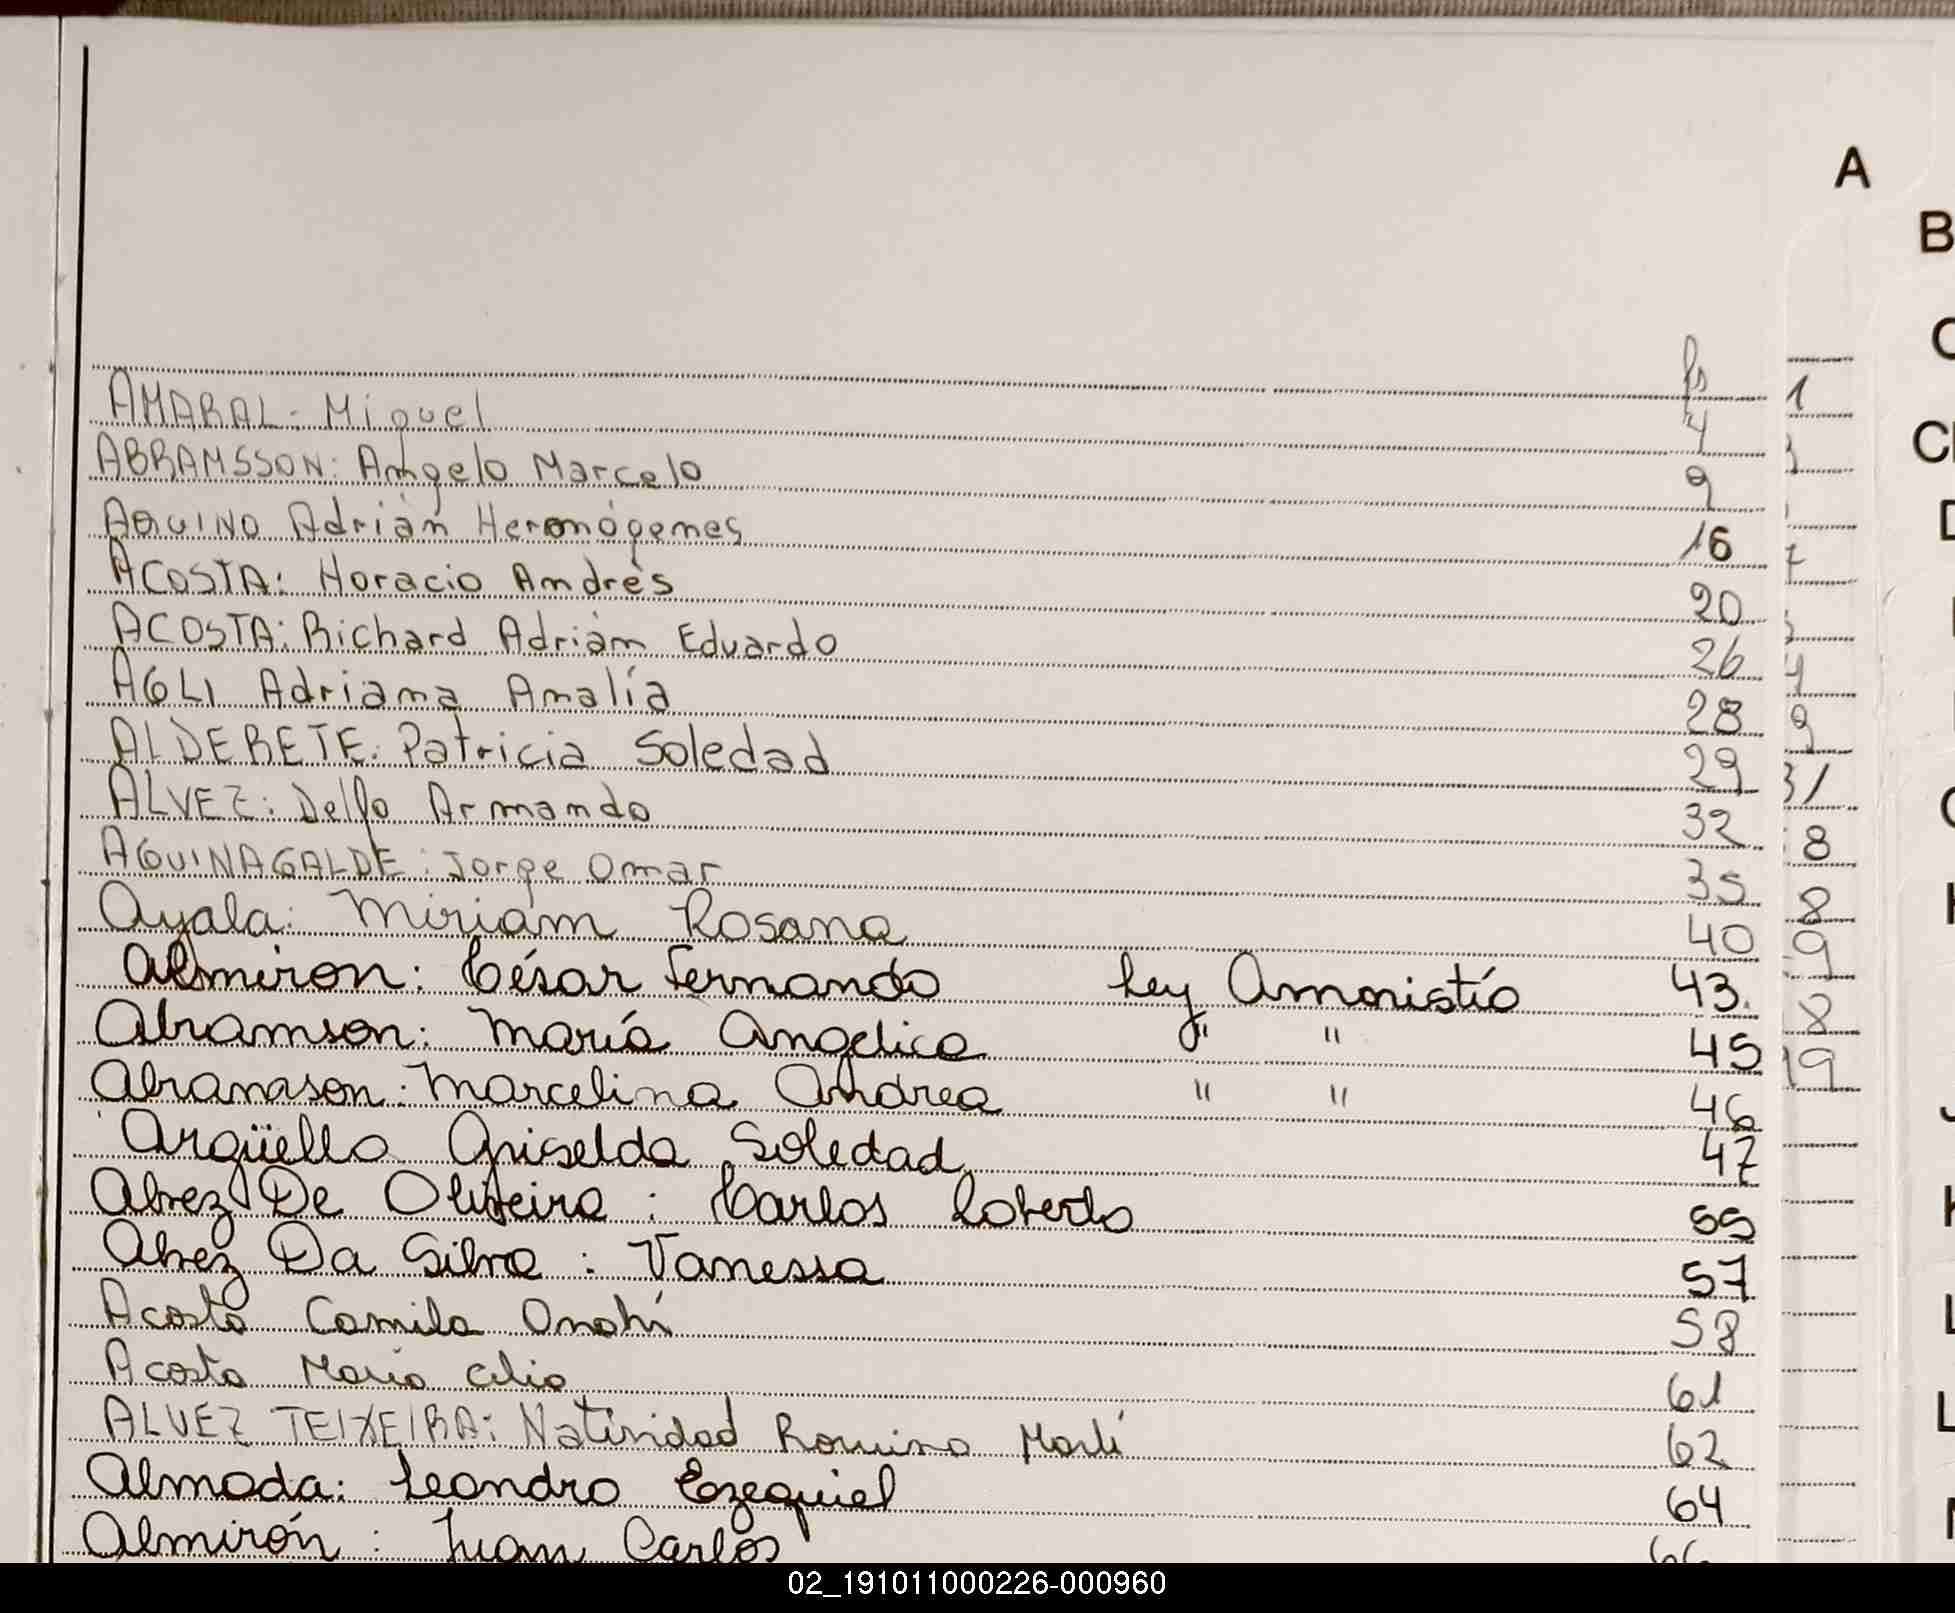 A
B
fs
AMARAL: Miguel 4
ABRAMSSON: Angelo Marcelo 9
AQUINO Adrián Hermógenes 16
ACOSTA: Horacio Andrés 20
ACOSTA: Richard Adrián Eduardo 26
AGLI Adriana Amalía 28
ALDERETE. Patricia Soledad 29
ALVEZ: Delfo Armando 32
AGUINAGALDE: Jorge Omar 35
Ayala: Miriam Rosana 40
Almiron: César Fernando Ley Amnistía 43.
Abramson: María Angelica " " 45
Abramson: Marcelina Andrea " " 46
Argüello Griselda Soledad 47
Alvez De Oliveira: Carlos Roberto 55
Alvez Da Silva: Vanessa 57
Acosta Camila Anahí 58
Acosta María Celia 61
ALVEZ TEIXEIRA: Natividad Romina 62
Almada: Leandro Ezequiel 64
Almirón: Juan Carlos 66
02_191011000226-000960